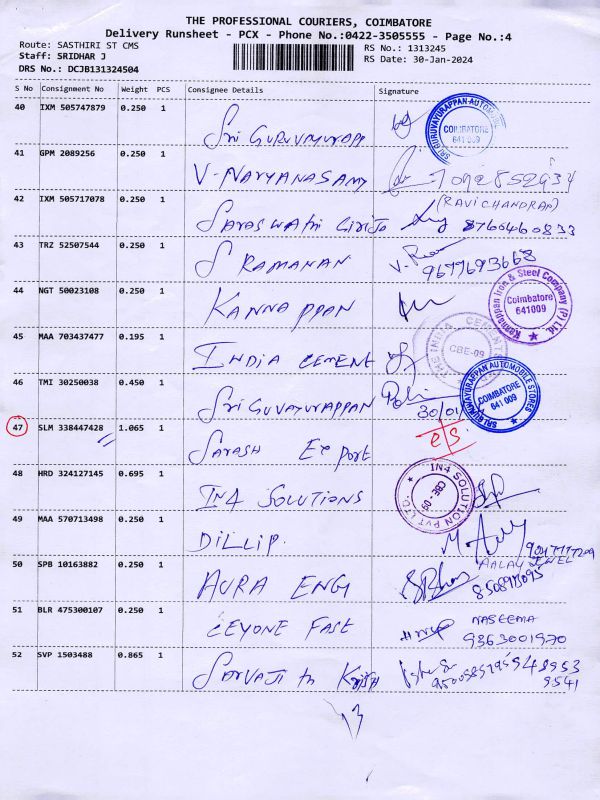 THE PROFESSIONAL COURIERS, COIMBATORE
Delivery Runsheet - PCX - Phone No.:0422-3505555 - Page No.:4
Route: SASTHIRI ST CMS
RS No.: 1313245
Staff: SRIDHAR J
RS Date: 30-Jan-2024
DRS No.: DCJB131324504
S No Consignment No Weight PCS Consignee Details Signature
40 IXM 505747879 0.250 1
SRI GURUVAYURAPPAN AUTOMOBILE
COIMBATORE
641 009
41 GPM 2089256 0.250 1
V-NARYANASAMY
(RAVICHANDRAN)
42 IXM 505717078 0.250 1
SARASWATHI GIRIJA 8760460833
43 TRZ 52507544 0.250 1
S RAMANAN
9677693668
44 NGT 50023108 0.250 1
KANNAPPAN
Kannappan Iron & Steel Company (P) Ltd.
Coimbatore
641009
45 MAA 703437477 0.195 1
INDIA CEMENT
THE INDIA CEMENTS
CBE-09
46 TMI 30250038 0.450 1
SRI GUVAYURAPPAN
30/01
SRI GURUVAYURAPPAN AUTOMOBILE STORES
COIMBATORE
641 009
47 SLM 338447428 1.065 1
Sarash Export
e/s
48 HRD 324127145 0.695 1
IN4 SOLUTIONS
IN4 SOLUTION PVT LTD.
CBE - 09
49 MAA 570713498 0.250 1
DILLIP.
50 SPB 10163882 0.250 1
AURA ENGI
51 BLR 475300107 0.250 1
CEYONE FAST
NASEEMA
9363001970
52 SVP 1503488 0.865 1
13